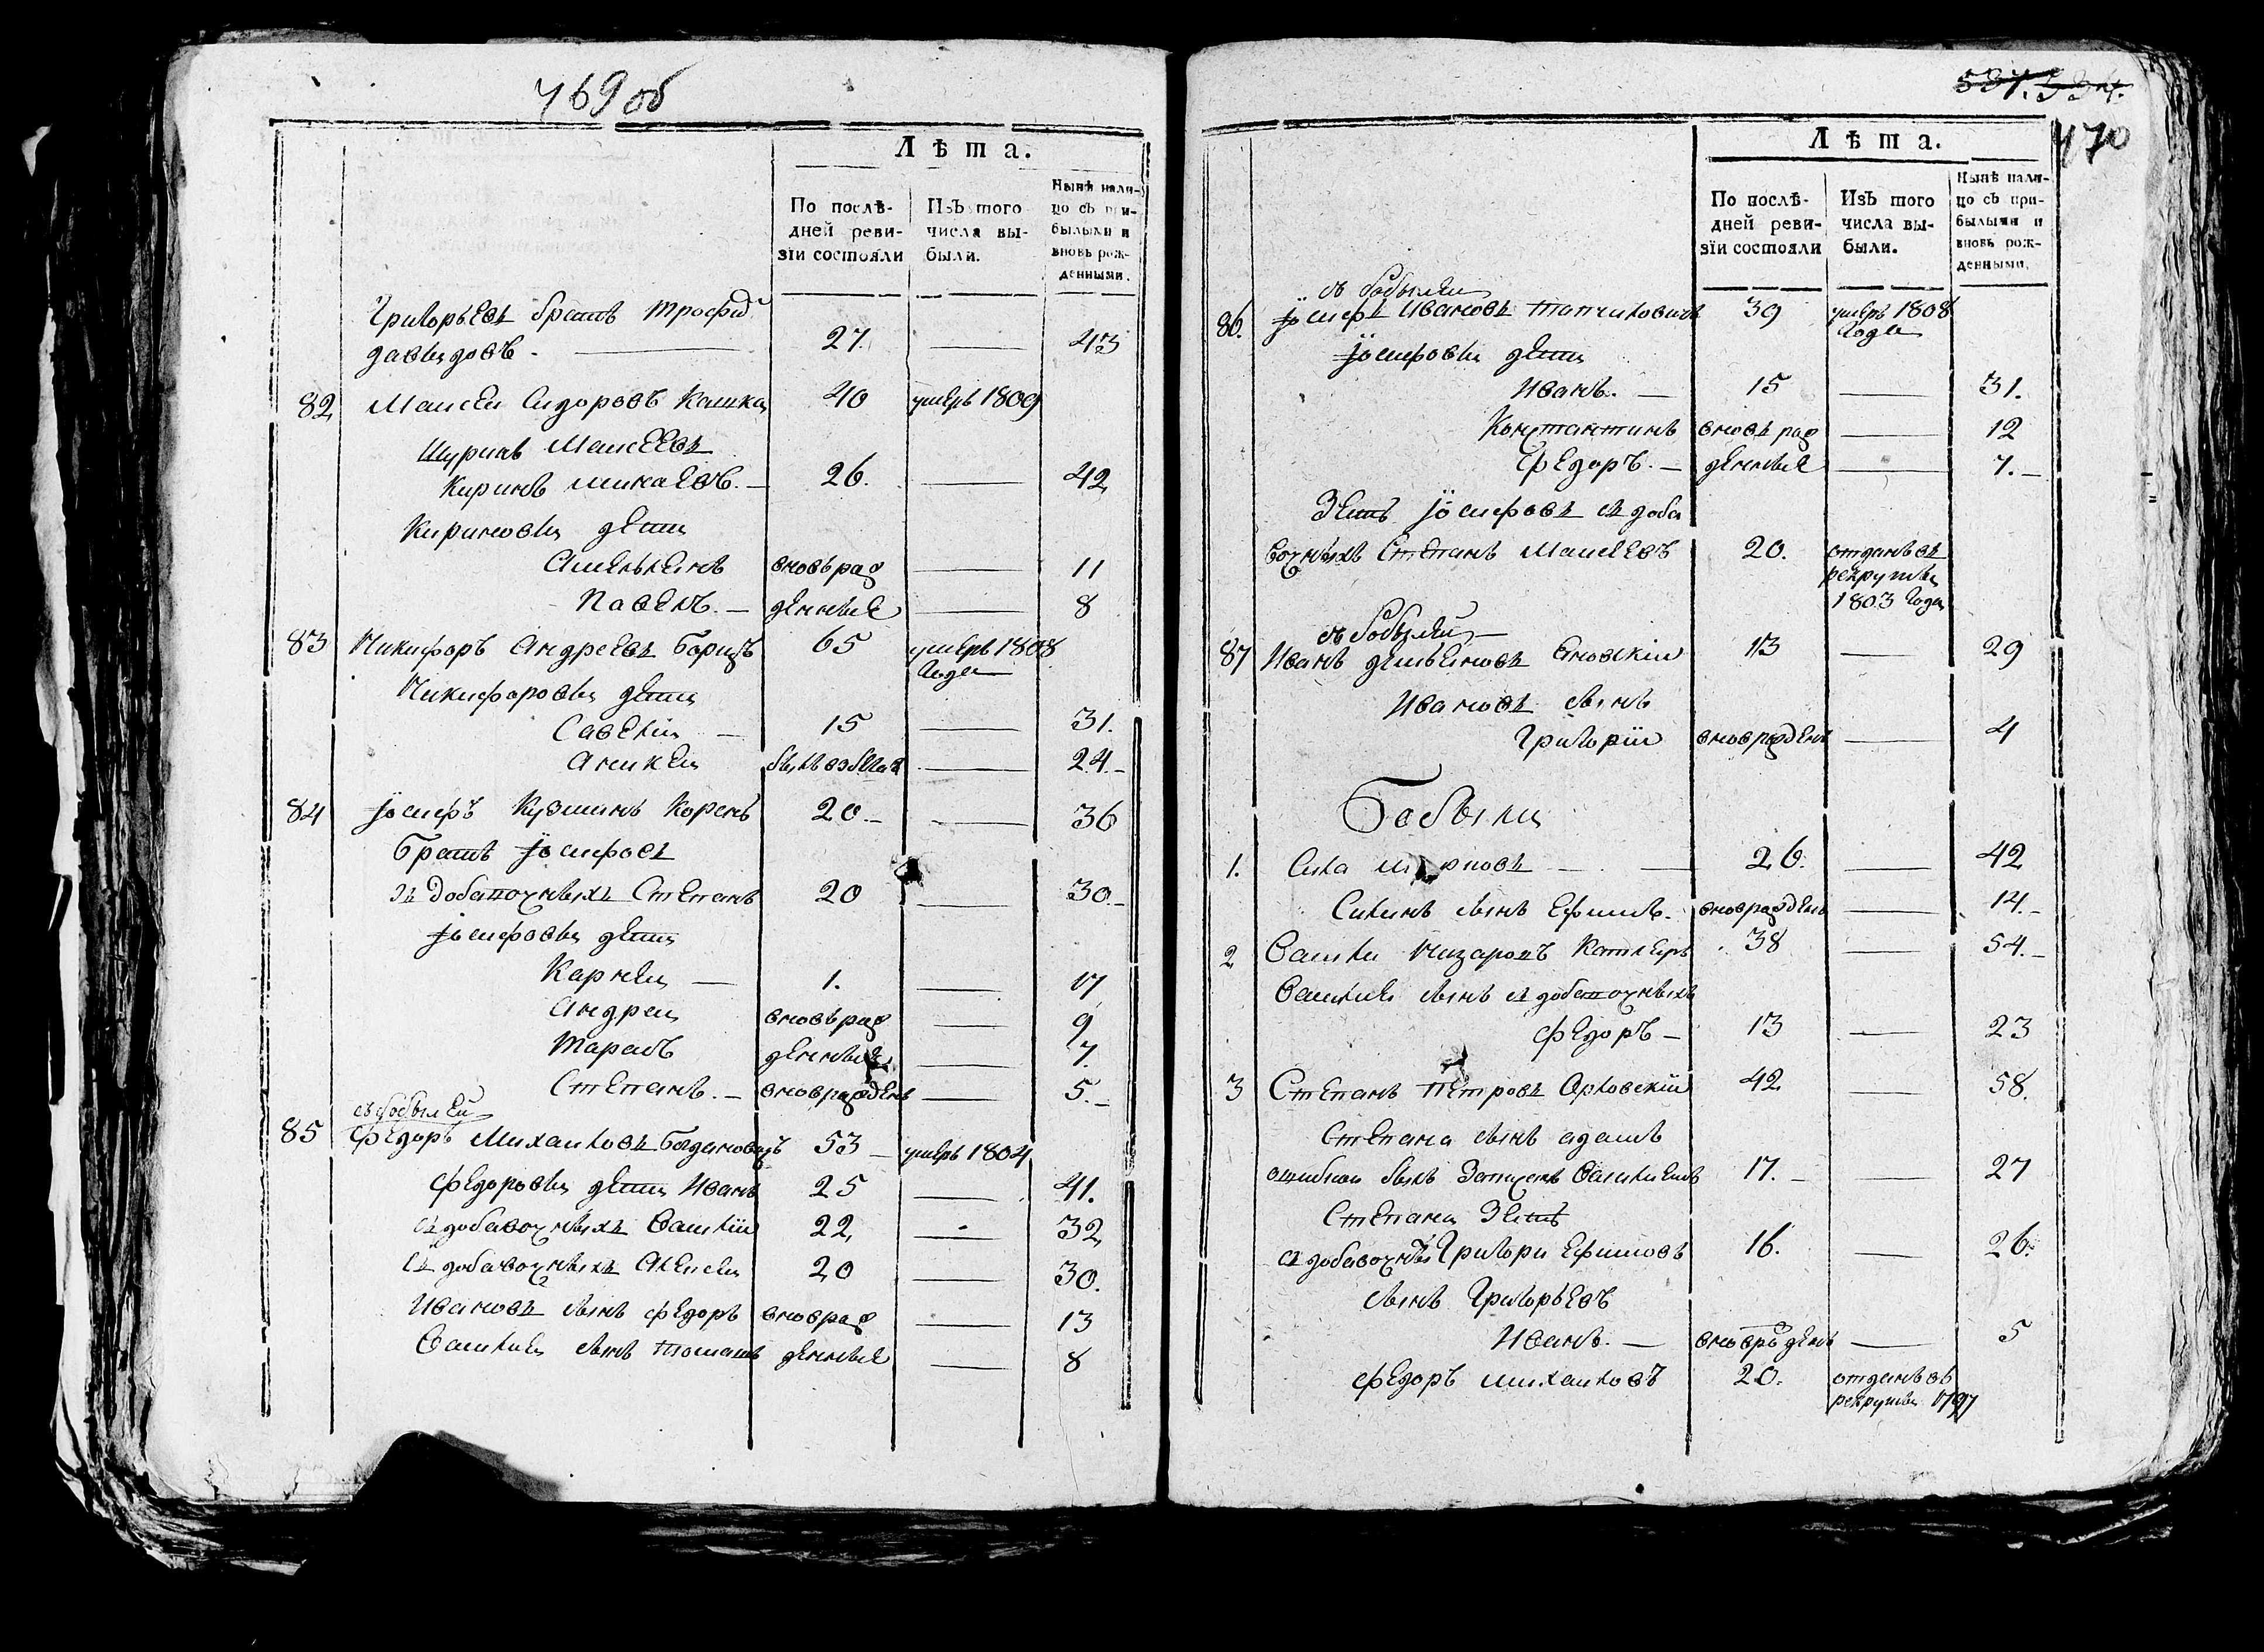 469 об
Лѣта.
По послѣ-
дней реви-
зіи состояли
Изъ того
числа вы-
были.
Нынѣ нали-
цо съ при-
былыми и
вновь рож-
денными.
Григорьевъ братъ Трофим
Давыдовъ. — 27. — 43
82 Моисей Сидоровъ Кашка 40 умеръ 1809
Шуринъ Моисеевъ
Кирилъ Михаевъ. — 26. — 42
Кириловы дети
Амельянъ вновь рож — 11
Павелъ. — денные — 8
83 Никифоръ Андреевъ 65 умеръ 1808
года
Никифоровы дети
Савелій — 15 — 31.
Аникей — 24.-
84 Іосифъ Кузминъ Корень 20.- — 36
Братъ Іосифовъ
зъ добавочныхъ Степанъ 20 — 30.-
Іосифовы дети
Карней — 1. — 17
Андрей вновь рож — 9
Тарасъ денные — 7.
Степанъ. — вновь рожденъ — 5.-
съ бобылей
85 Федоръ Михайловъ Богдановичъ 53 — умеръ 1804
Федоровы дети Иванъ 25 — 41.
съ добавочныхъ Василій 22, — 32,
съ добавочныхъ Алексей 20 — 30.
Ивановъ сынъ Федоръ вновь рож — 13
Василия сынъ Томашъ денные — 8
537. 534.
470
Лѣта.
По послѣ-
дней реви-
зіи состояли
Изъ того
числа вы-
были.
Нынѣ нали-
цо съ при-
былыми и
вновь рож-
денными.
съ бобылей
86. Іосифъ Ивановъ 39 умеръ 1808
года
Іосифовы дети
Иванъ. — 15 — 31.
Константинъ вновь рож — 12
Федоръ. — денные — 7.-
Зять Іосифовъ съ доба
вочныхъ Степанъ Моисеевъ 20. отданъ въ
рекруты
1803 года
съ бобылей
87 Иванъ Демьяновъ 13 — 29
Ивановъ сынъ
Григорій вновь рожденъ — 4
Бобыли
1. Сила — 26. — 42
Силинъ сынъ Ефимъ. вновь рожденъ — 14.-
2 Василий Назаровъ 38 — 54.-
Василия сынъ съ добавочныхъ
Федоръ — 13 — 23
3 Степанъ Петровъ Орловскій 42 — 58.
Степана сынъ Адамъ
ошибкой былъ записанъ Василиемъ 17.- — 27
Степана зять
съ добавочны Григори Ефимовъ 16. — 26.
сынъ Григорьевъ
Иванъ. — вновь рожденъ — 5
Федоръ Михайловъ 20. отданъ въ
рекруты 1797